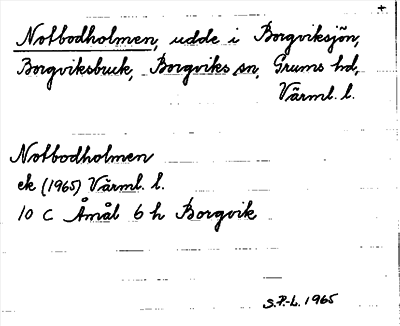 +
Notbodholmen, udde i Borgviksjön,
Borgviksbruk, Borgviks sn, Grums hd,
Värml. l.
Notbodholmen
ek (1965) Värml. l.
10 C Åmål 6 h Borgvik
S.P.-L. 1965